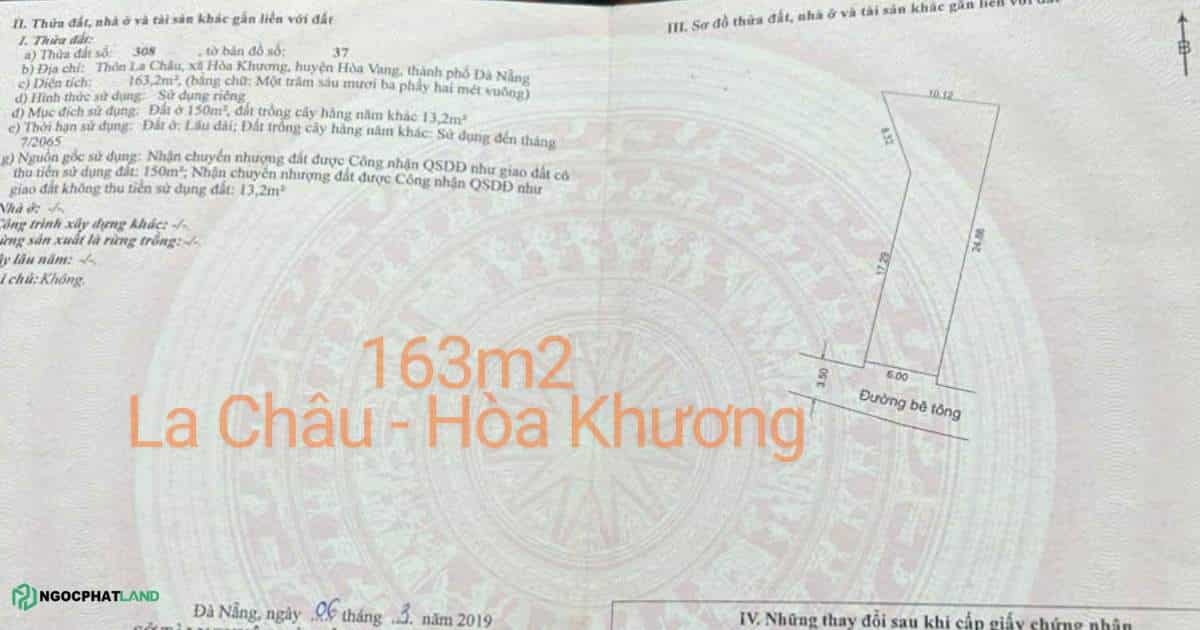 II. Thửa đất, nhà ở và tài sản khác gắn liền với đất
1. Thửa đất:
a) Thửa đất số: 308 , tờ bản đồ số: 37
b) Địa chỉ: Thôn La Châu, xã Hòa Khương, huyện Hòa Vang, thành phố Đà Nẵng
c) Diện tích: 163,2m², (bằng chữ: Một trăm sáu mươi ba phẩy hai mét vuông)
d) Hình thức sử dụng: Sử dụng riêng
đ) Mục đích sử dụng: Đất ở 150m², đất trồng cây hàng năm khác 13,2m²
e) Thời hạn sử dụng: Đất ở: Lâu dài; Đất trồng cây hàng năm khác: Sử dụng đến tháng
7/2065
g) Nguồn gốc sử dụng: Nhận chuyển nhượng đất được Công nhận QSDĐ như giao đất có
thu tiền sử dụng đất: 150m²; Nhận chuyển nhượng đất được Công nhận QSDĐ như
giao đất không thu tiền sử dụng đất: 13,2m²
Nhà ở: -/-.
Công trình xây dựng khác: -/-.
rừng sản xuất là rừng trồng: -/-.
ây lâu năm: -/-.
i chú: Không.
III. Sơ đồ thửa đất, nhà ở và tài sản khác gắn liền với đất
B
10.12
8.32
17.29
24.88
6.00
3.50
Đường bê tông
163m2
La Châu - Hòa Khương
NGOCPHATLAND
Đà Nẵng, ngày 06 tháng 3 năm 2019
IV. Những thay đổi sau khi cấp giấy chứng nhận